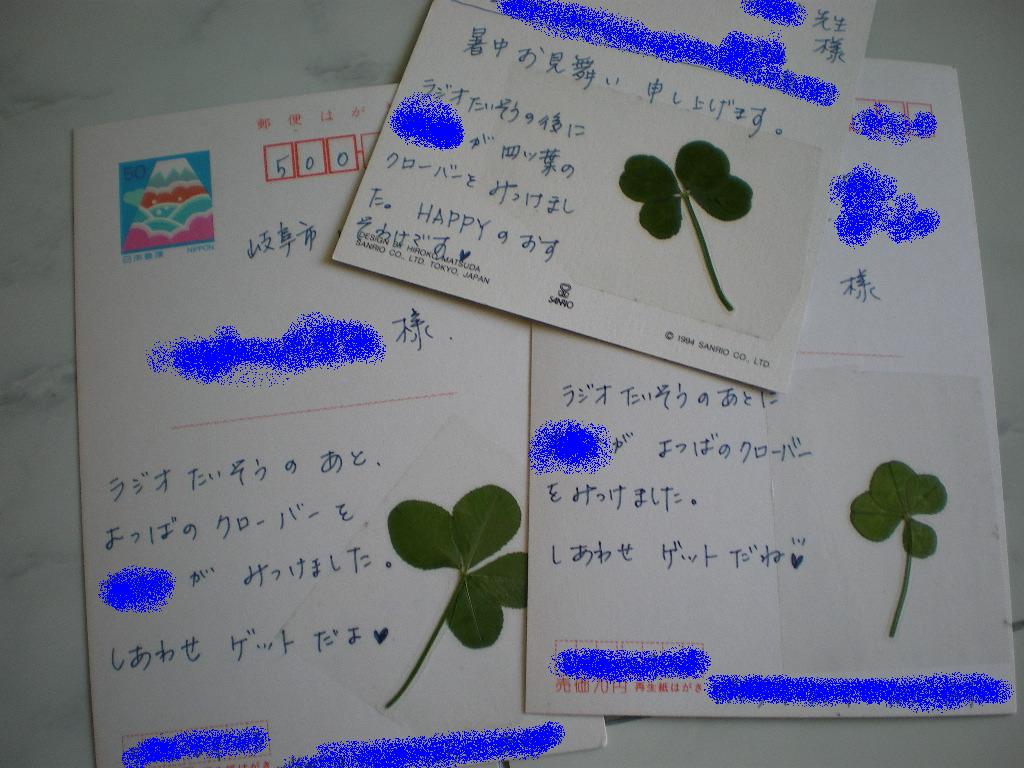 郵便はが
50
NIPPON
日本郵便
500
岐阜市
様
ラジオたいそうのあと、
よつばのクローバーを
が みつけました。
しあわせ ゲットだよ♥
先生
様
暑中お見舞い申し上げます。
ラジオたいそうの後に
が 四ッ葉の
クローバーを みつけまし
た。HAPPYのおす
そわけです♥
DESIGN BY HIROKO MATSUDA
SANRIO CO., LTD. TOKYO, JAPAN
SANRIO
© 1994 SANRIO CO., LTD.
様
ラジオたいそうのあとに
が よつばのクローバー
をみつけました。
しあわせ ゲットだね♥
売価70円 再生紙はがき